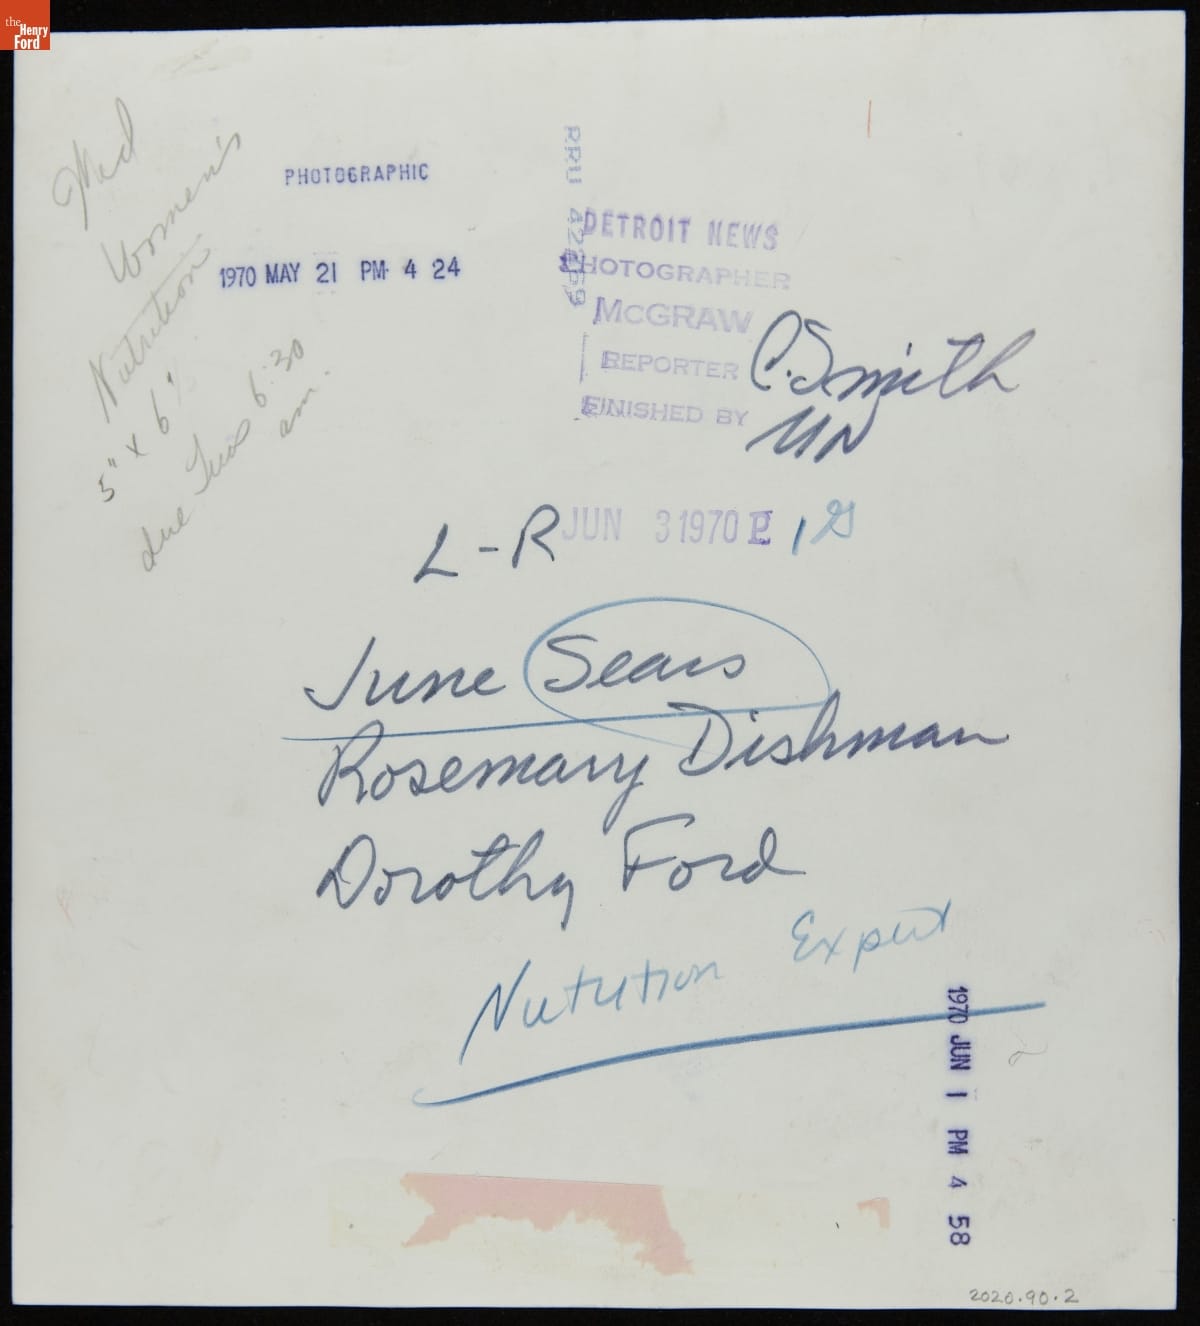 the
Henry
Ford
Wed
Women's
Nutrition
5" x 6"
due Tues 6:30
am.
PHOTOGRAPHIC
1970 MAY 21 PM 4 24
DETROIT NEWS
PHOTOGRAPHER
McGRAW
REPORTER C. Smith
FINISHED BY MN
L-R
JUN 3 1970 P
June Sears
Rosemary Dishman
Dorothy Ford
Nutrition Expert
1970 JUN 1 PM 4 58
2020.90.2